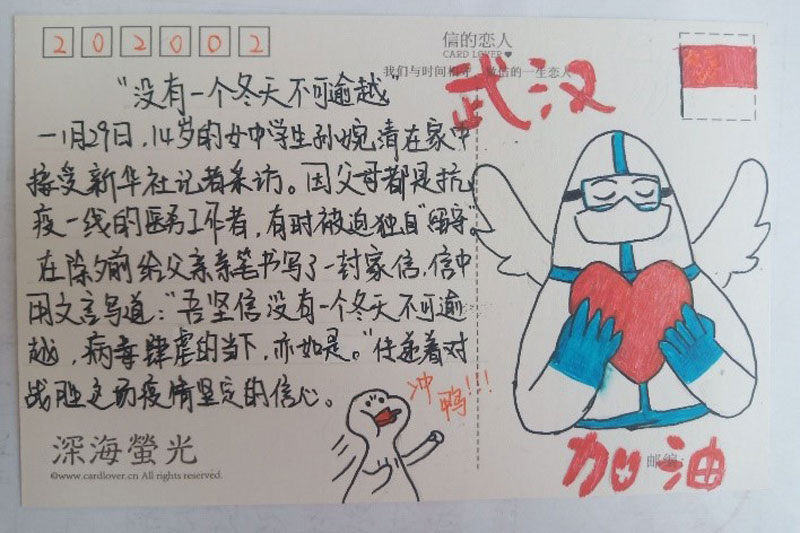 202002
信的恋人
CARD LOVER
我们与时间相守 信的一生恋人
武汉
"没有一个冬天不可逾越"
一1月29日，14岁的女中学生孙婉清在家中
接受新华社记者采访。因父母都是抗
疫一线的医务工作者，有时被迫独自"留守"。
在除夕前给父亲亲笔书写了一封家信，信中
用文言写道："吾坚信没有一个冬天不可逾
越，病毒肆虐的当下，亦如是。"传递着对
战胜这场疫情坚定的信心。
冲鸭!!!
深海螢光
©www.cardlover.cn All rights reserved.
邮编:
加油